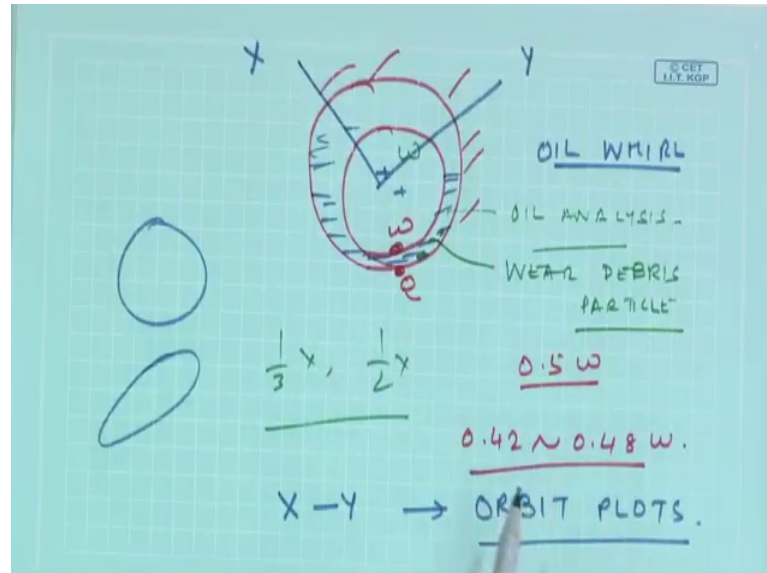 X
Y
© CET
I.I.T. KGP
ω
OIL WHIRL
OIL ANALYSIS
ω
WEAR DEBRIS
PARTICLE
1/3 x, 1/2 x
0.5 ω
0.42 ~ 0.48 ω.
X – Y → ORBIT PLOTS.